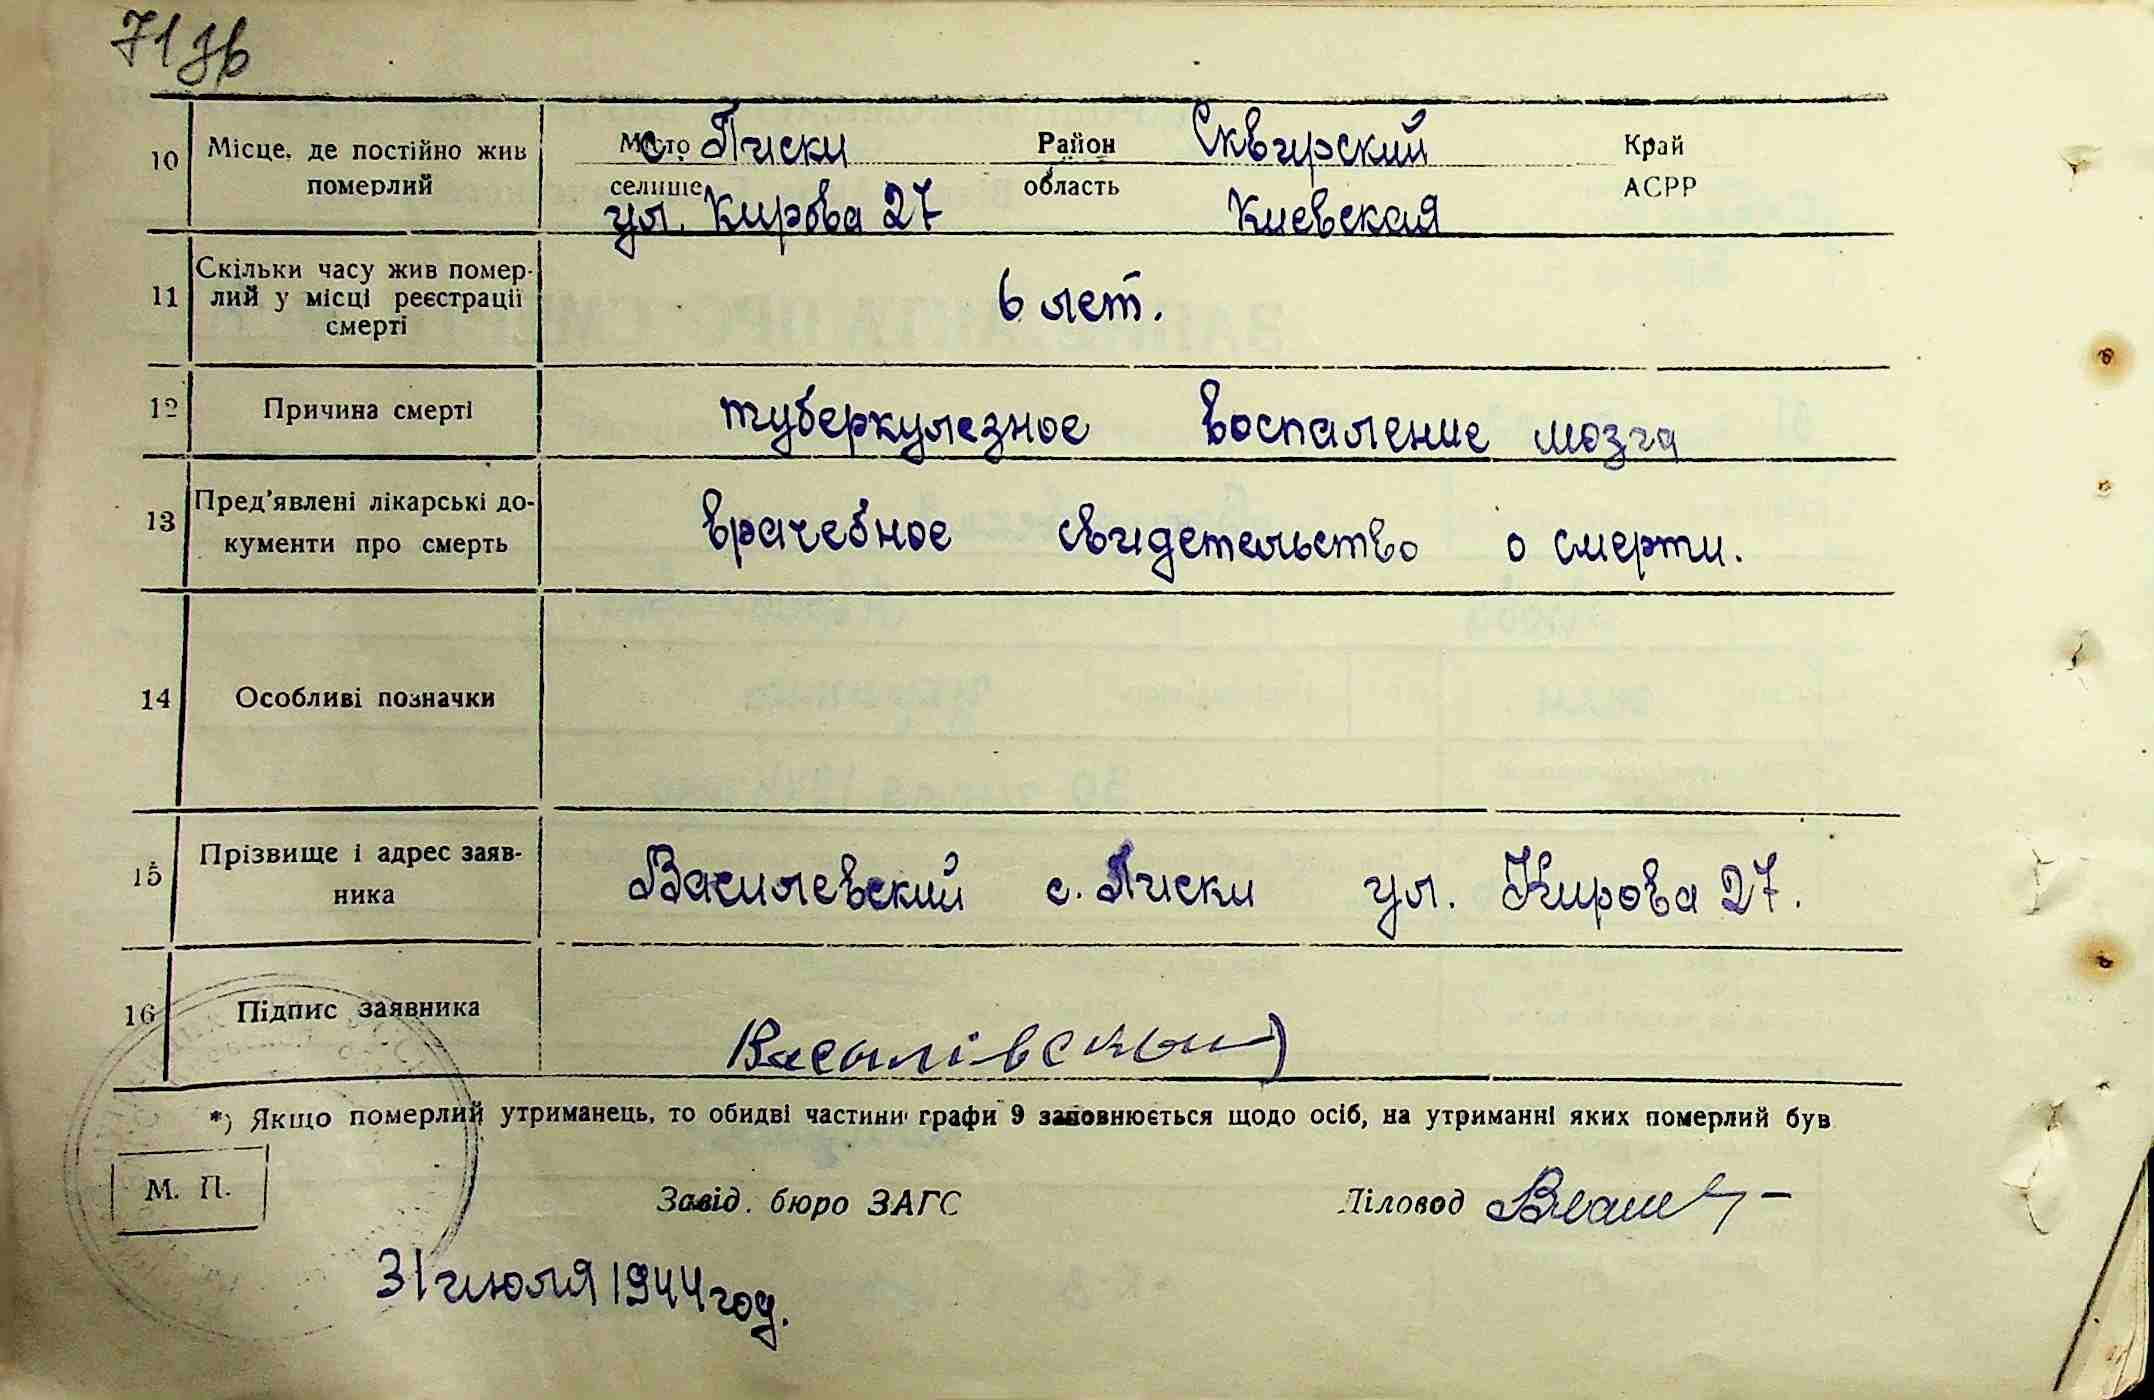 71 зв
10 Місце, де постійно жив померлий
Місто с. Писки Район Сквирский Край
селище область АСРР
ул. Кирова 27 Киевская
11 Скільки часу жив помер-
лий у місці реєстрації
смерті
6 лет.
12 Причина смерті туберкулезное воспаление мозга
13 Пред'явлені лікарські до-
кументи про смерть
врачебное свидетельство о смерти.
14 Особливі позначки
15 Прізвище і адрес заяв-
ника
Василевский с. Писки ул. Кирова 27.
16 Підпис заявника Василівский
*) Якщо померлий утриманець, то обидві частини графи 9 заповнюється щодо осіб, на утриманні яких померлий був
М. П.
Завід. бюро ЗАГС Діловод
31 июля 1944 год.